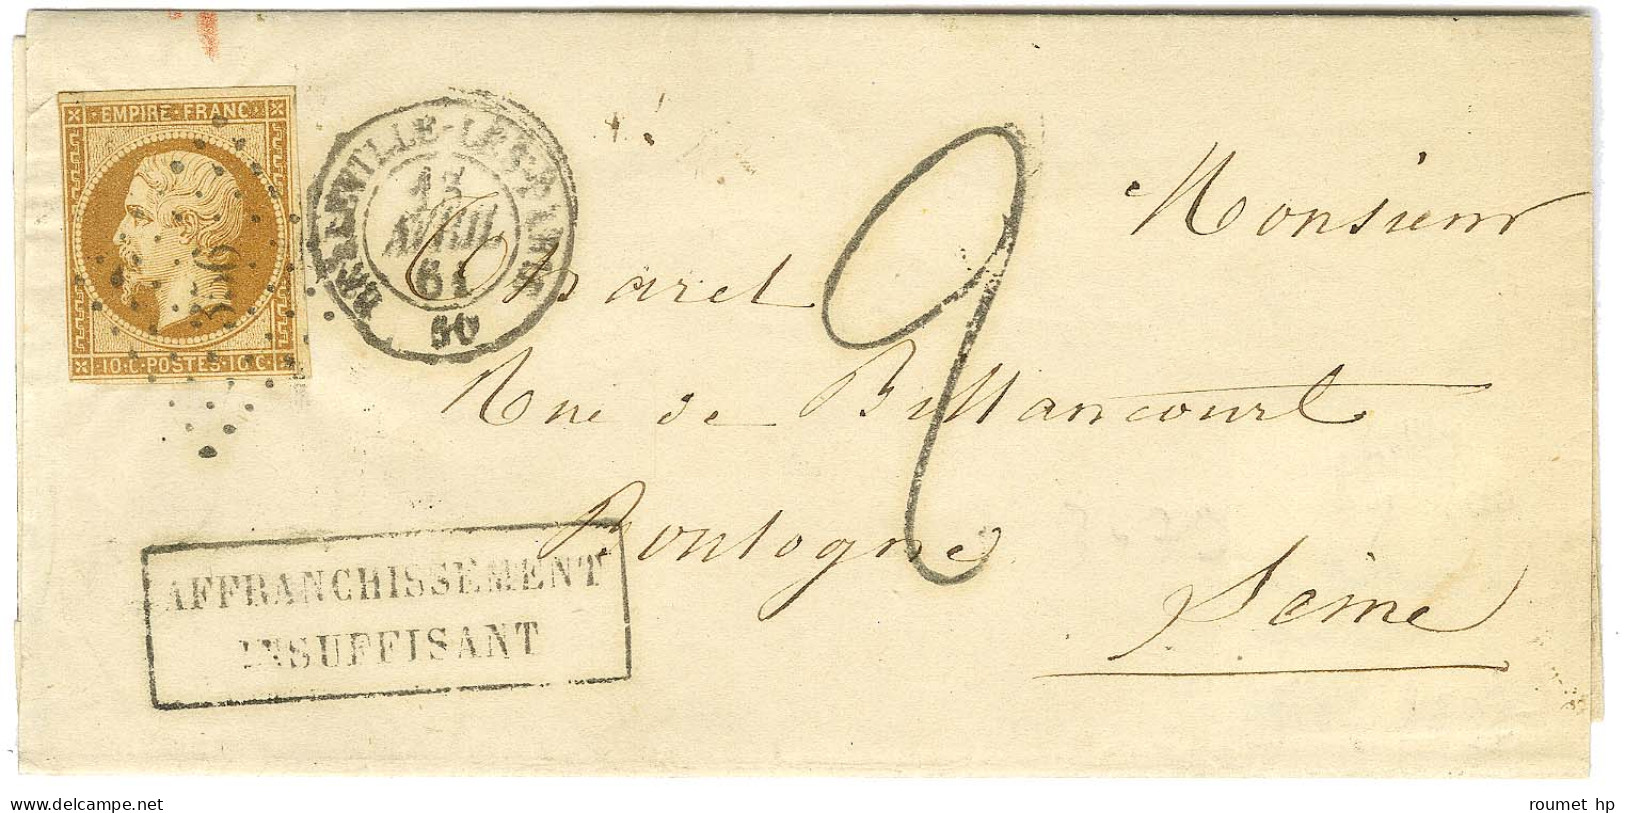 EMPIRE·FRANC·
10·C·POSTES·10·C·
BELLEVILLE-LES-PARIS
13
AVRIL
61
60
2
Monsieur
Maret
Rue de Billancourt
Boulogne
Seine
AFFRANCHISSEMENT
INSUFFISANT
www.delcampe.net
roumet hp